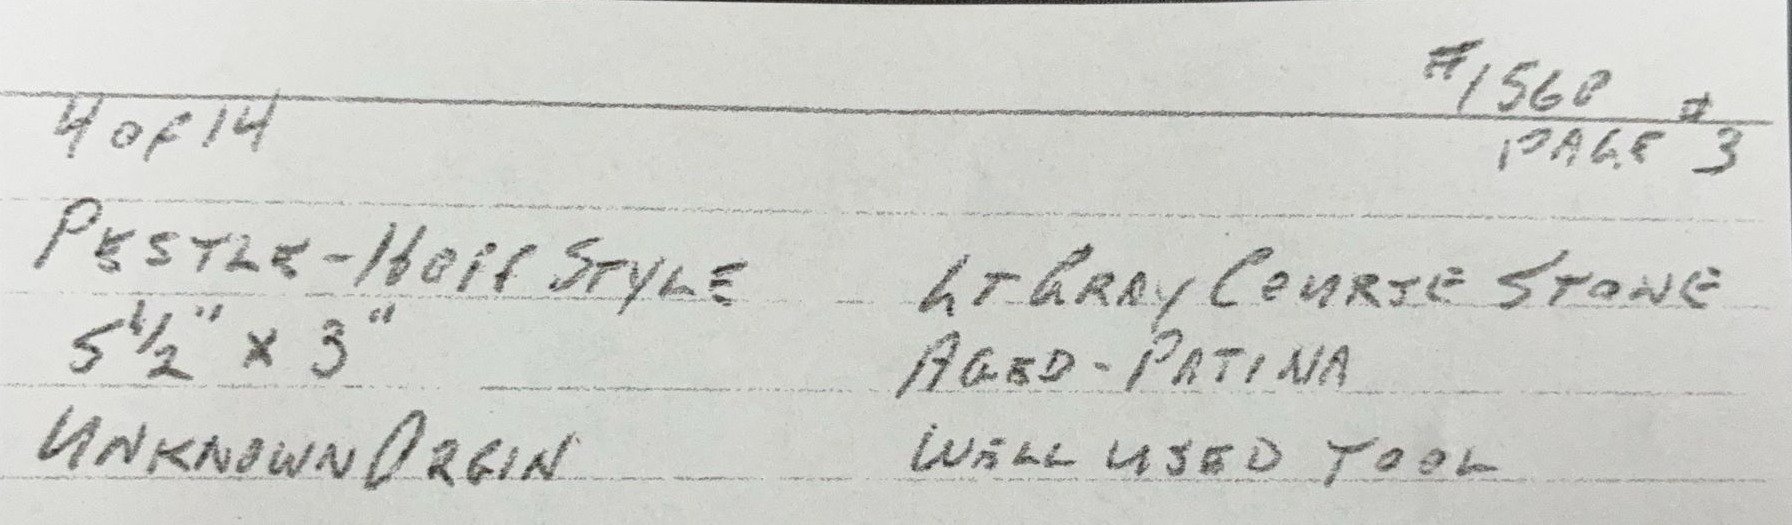 #1568
4 of 14
PAGE #3
PESTLE - HOFF STYLE
LT GRAY COURSE STONE
5 1/2" x 3"
AGED - PATINA
UNKNOWN ORGIN
WELL USED TOOL